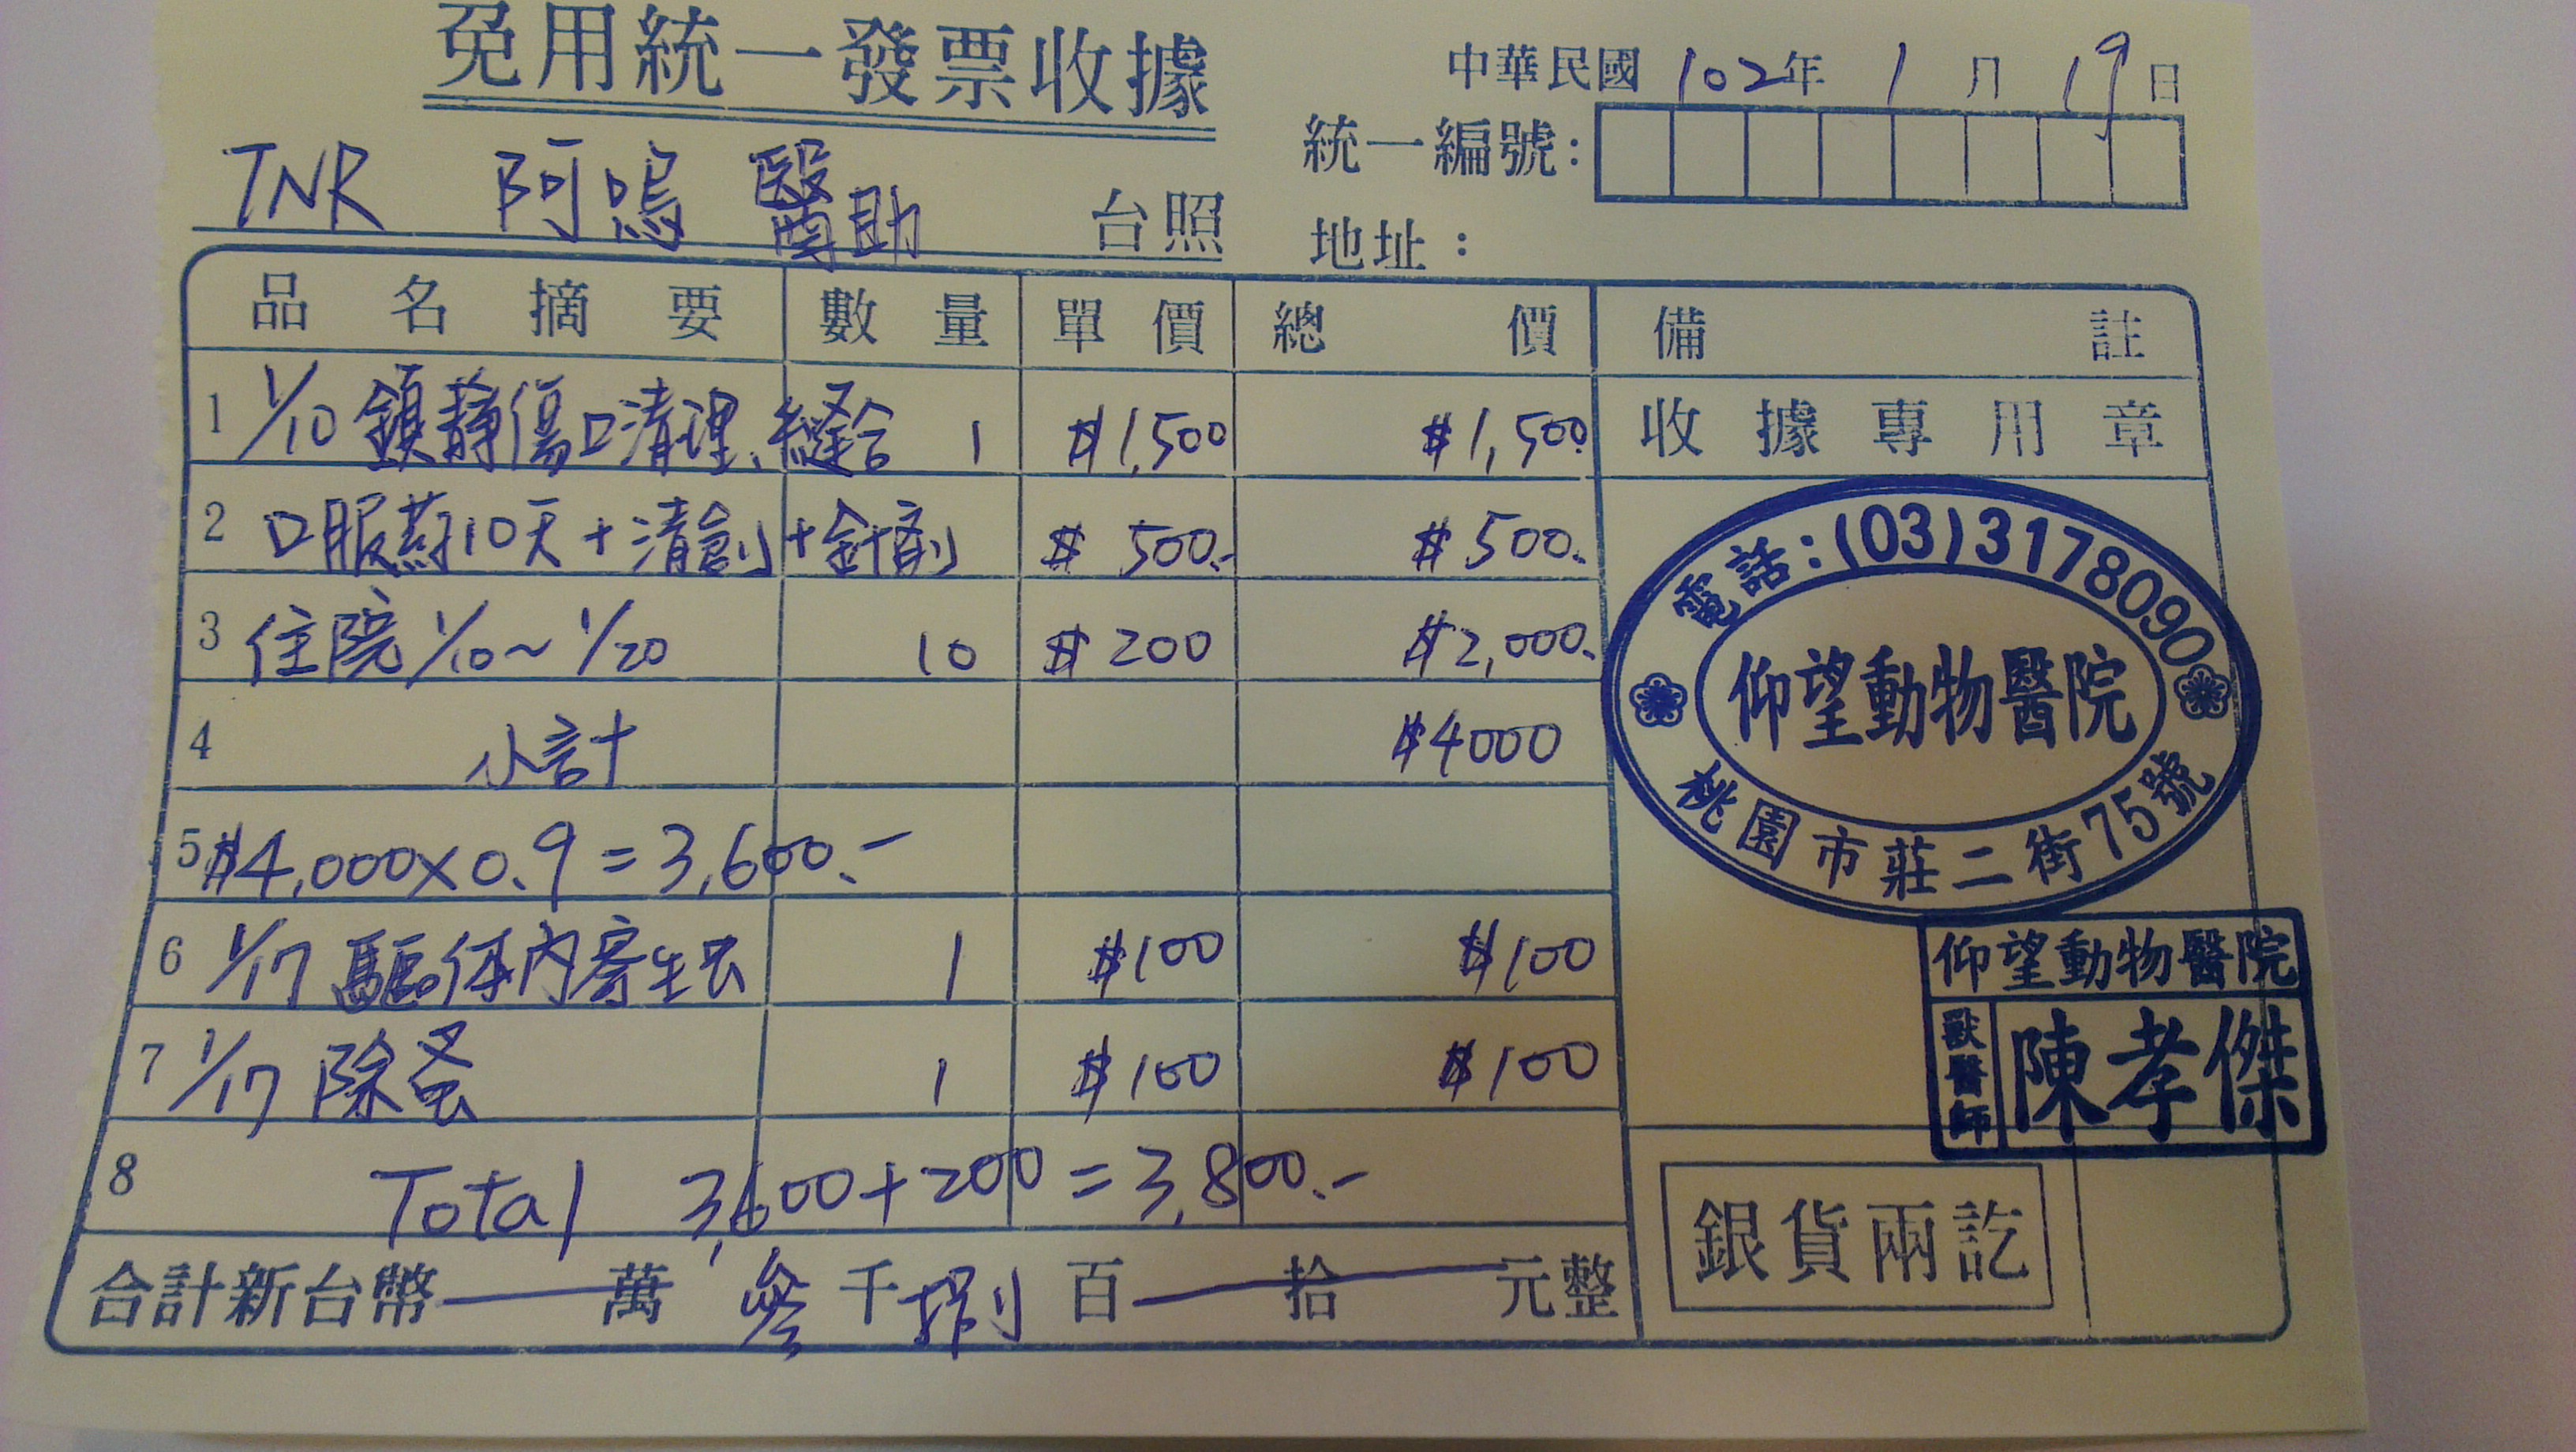 免用統一發票收據
中華民國 102年 1月 19日
統一編號:
TNR 阿嗚 醫助 台照
地址:
品名摘要 數量 單價 總價 備註
1 1/10 鎮靜傷口清理、縫合 1 $1,500 $1,500.
收據專用章
2 口服葯10天+清創+針劑 $ 500.- $ 500.
3 住院 1/10~1/20 10 $ 200 $2,000.
4 小計 $4000
5 $4,000×0.9=3,600.-
6 1/17 驅体內寄生虫 1 $100 $100
7 1/17 除蚤 1 $100 $100
8 Total 3,600+200=3,800.-
合計新台幣 萬 參千捌百 拾 元整
電話:(03)3178090
仰望動物醫院
桃園市莊二街75號
仰望動物醫院
獸醫師 陳孝傑
銀貨兩訖